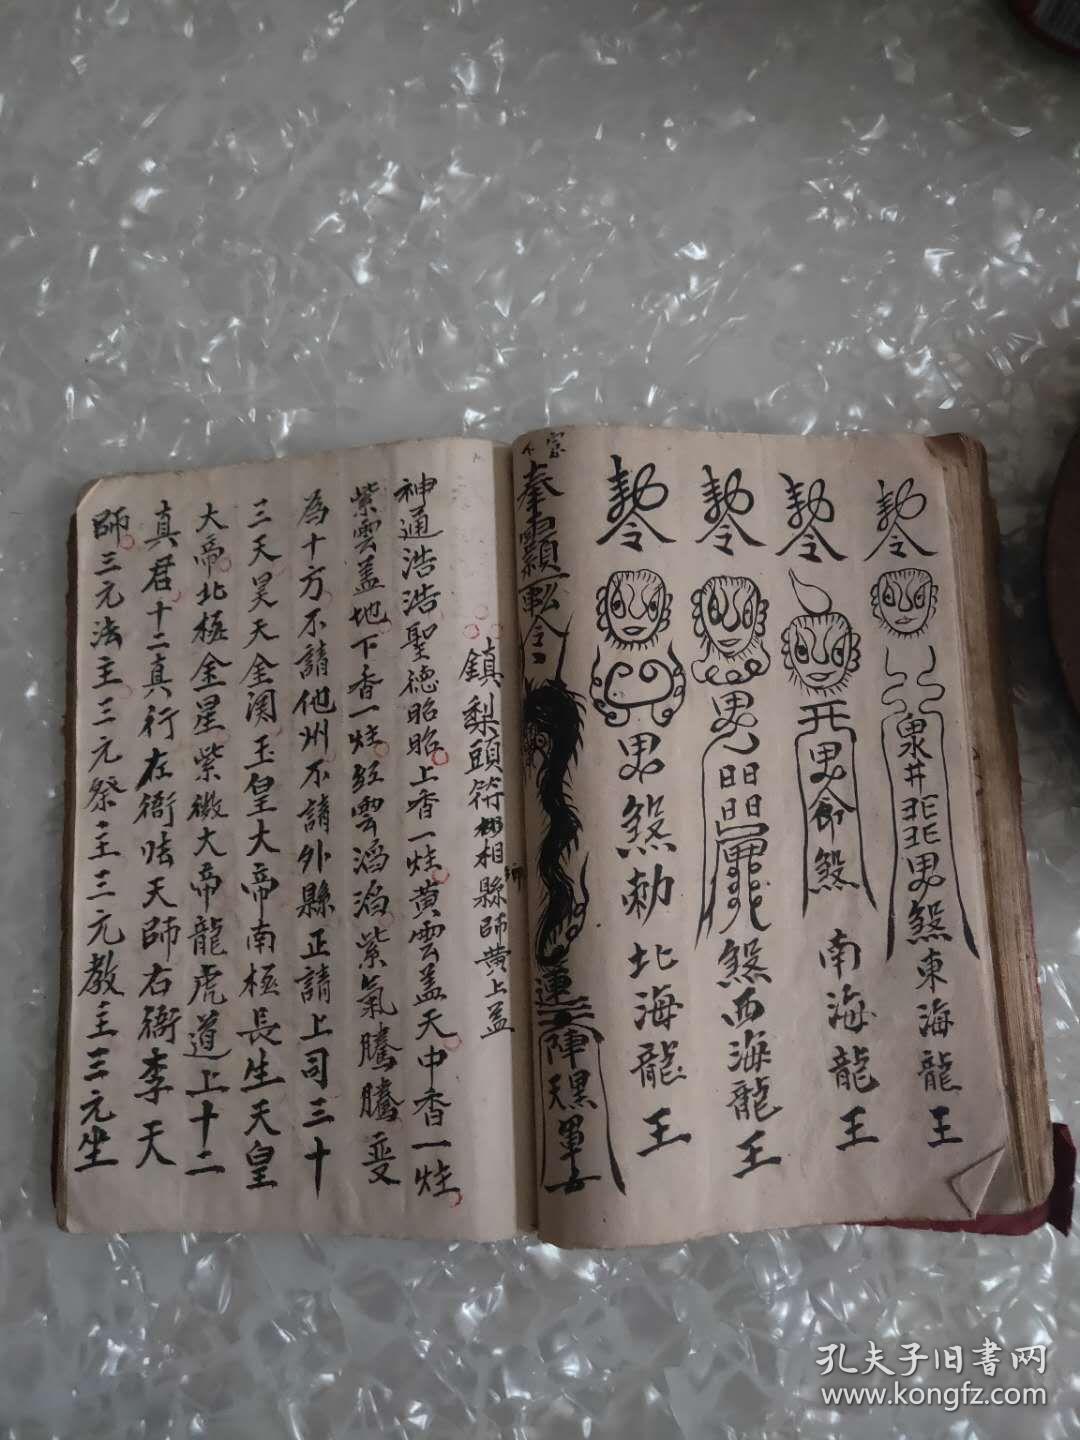 勅令 男煞東海龍王
勅令 男命煞 南海龍王
勅令 男 煞西海龍王
勅令 男煞勅北海龍王
奉 令 陣黑軍
鎮梨頭符 相縣師黄上孟
神通浩浩聖德昭昭上香一炷黄雲盖天中香一炷
紫雲盖地下香一炷红雲滔滔紫氣騰騰变
為十方不請他州不請外縣正請上司三十
三天昊天金闕玉皇大帝南極長生天皇
大帝北極金星紫微大帝龍虎道上十二
真君十二真行在衙 天師右衙李天
師三元法主三元祭主三元教主三元坐
孔夫子旧書网
www.kongfz.com